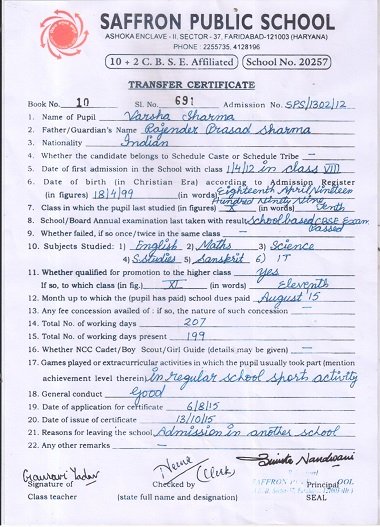 SAFFRON PUBLIC SCHOOL
ASHOKA ENCLAVE - II. SECTOR - 37, FARIDABAD-121003 (HARYANA)
PHONE : 2255735, 4128196
10 + 2 C. B. S. E. Affiliated School No. 20257
TRANSFER CERTIFICATE
Book No. 10 Sl. No. 691 Admission No. SPS/1302/12
1. Name of Pupil Varsha Sharma
2. Father/Guardian's Name Rajender Prasad Sharma
3. Nationality Indian
4. Whether the candidate belongs to Schedule Caste or Schedule Tribe —
5. Date of first admission in the School with class 1/4/12 in class VIII
6. Date of birth (in Christian Era) according to Admission Register
(in figures) 18/4/99 (in words) Eighteenth April Nineteen Hundred Ninety Nine
7. Class in which the pupil last studied (in figures) X (in words) Tenth
8. School/Board Annual examination last taken with result School based CBSE Exam Passed
9. Whether failed, if so once/twice in the same class —
10. Subjects Studied : 1) English 2) Maths 3) Science
4) S.studies 5) Sanskrit 6) IT
11. Whether qualified for promotion to the higher class Yes
If so, to which class (in fig.) XI (in words) Eleventh
12. Month up to which the (pupil has paid) school dues paid August'15
13. Any fee concession availed of : if so, the nature of such concession —
14. Total No. of working days 207
15. Total No. of working days present 199
16. Whether NCC Cadet/Boy Scout/Girl Guide (details may be given) —
17. Games played or extracurricular activities in which the pupil usually took part (mention
achievement level therein) In regular school sports activity
18. General conduct Good
19. Date of application for certificate 6/8/15
20. Date of issue of certificate 13/10/15
21. Reasons for leaving the school Admission in another school
22. Any other remarks —
Gauravi Yadav (Clerk)
Signature of Checked by Principal
Class teacher (state full name and designation) SEAL